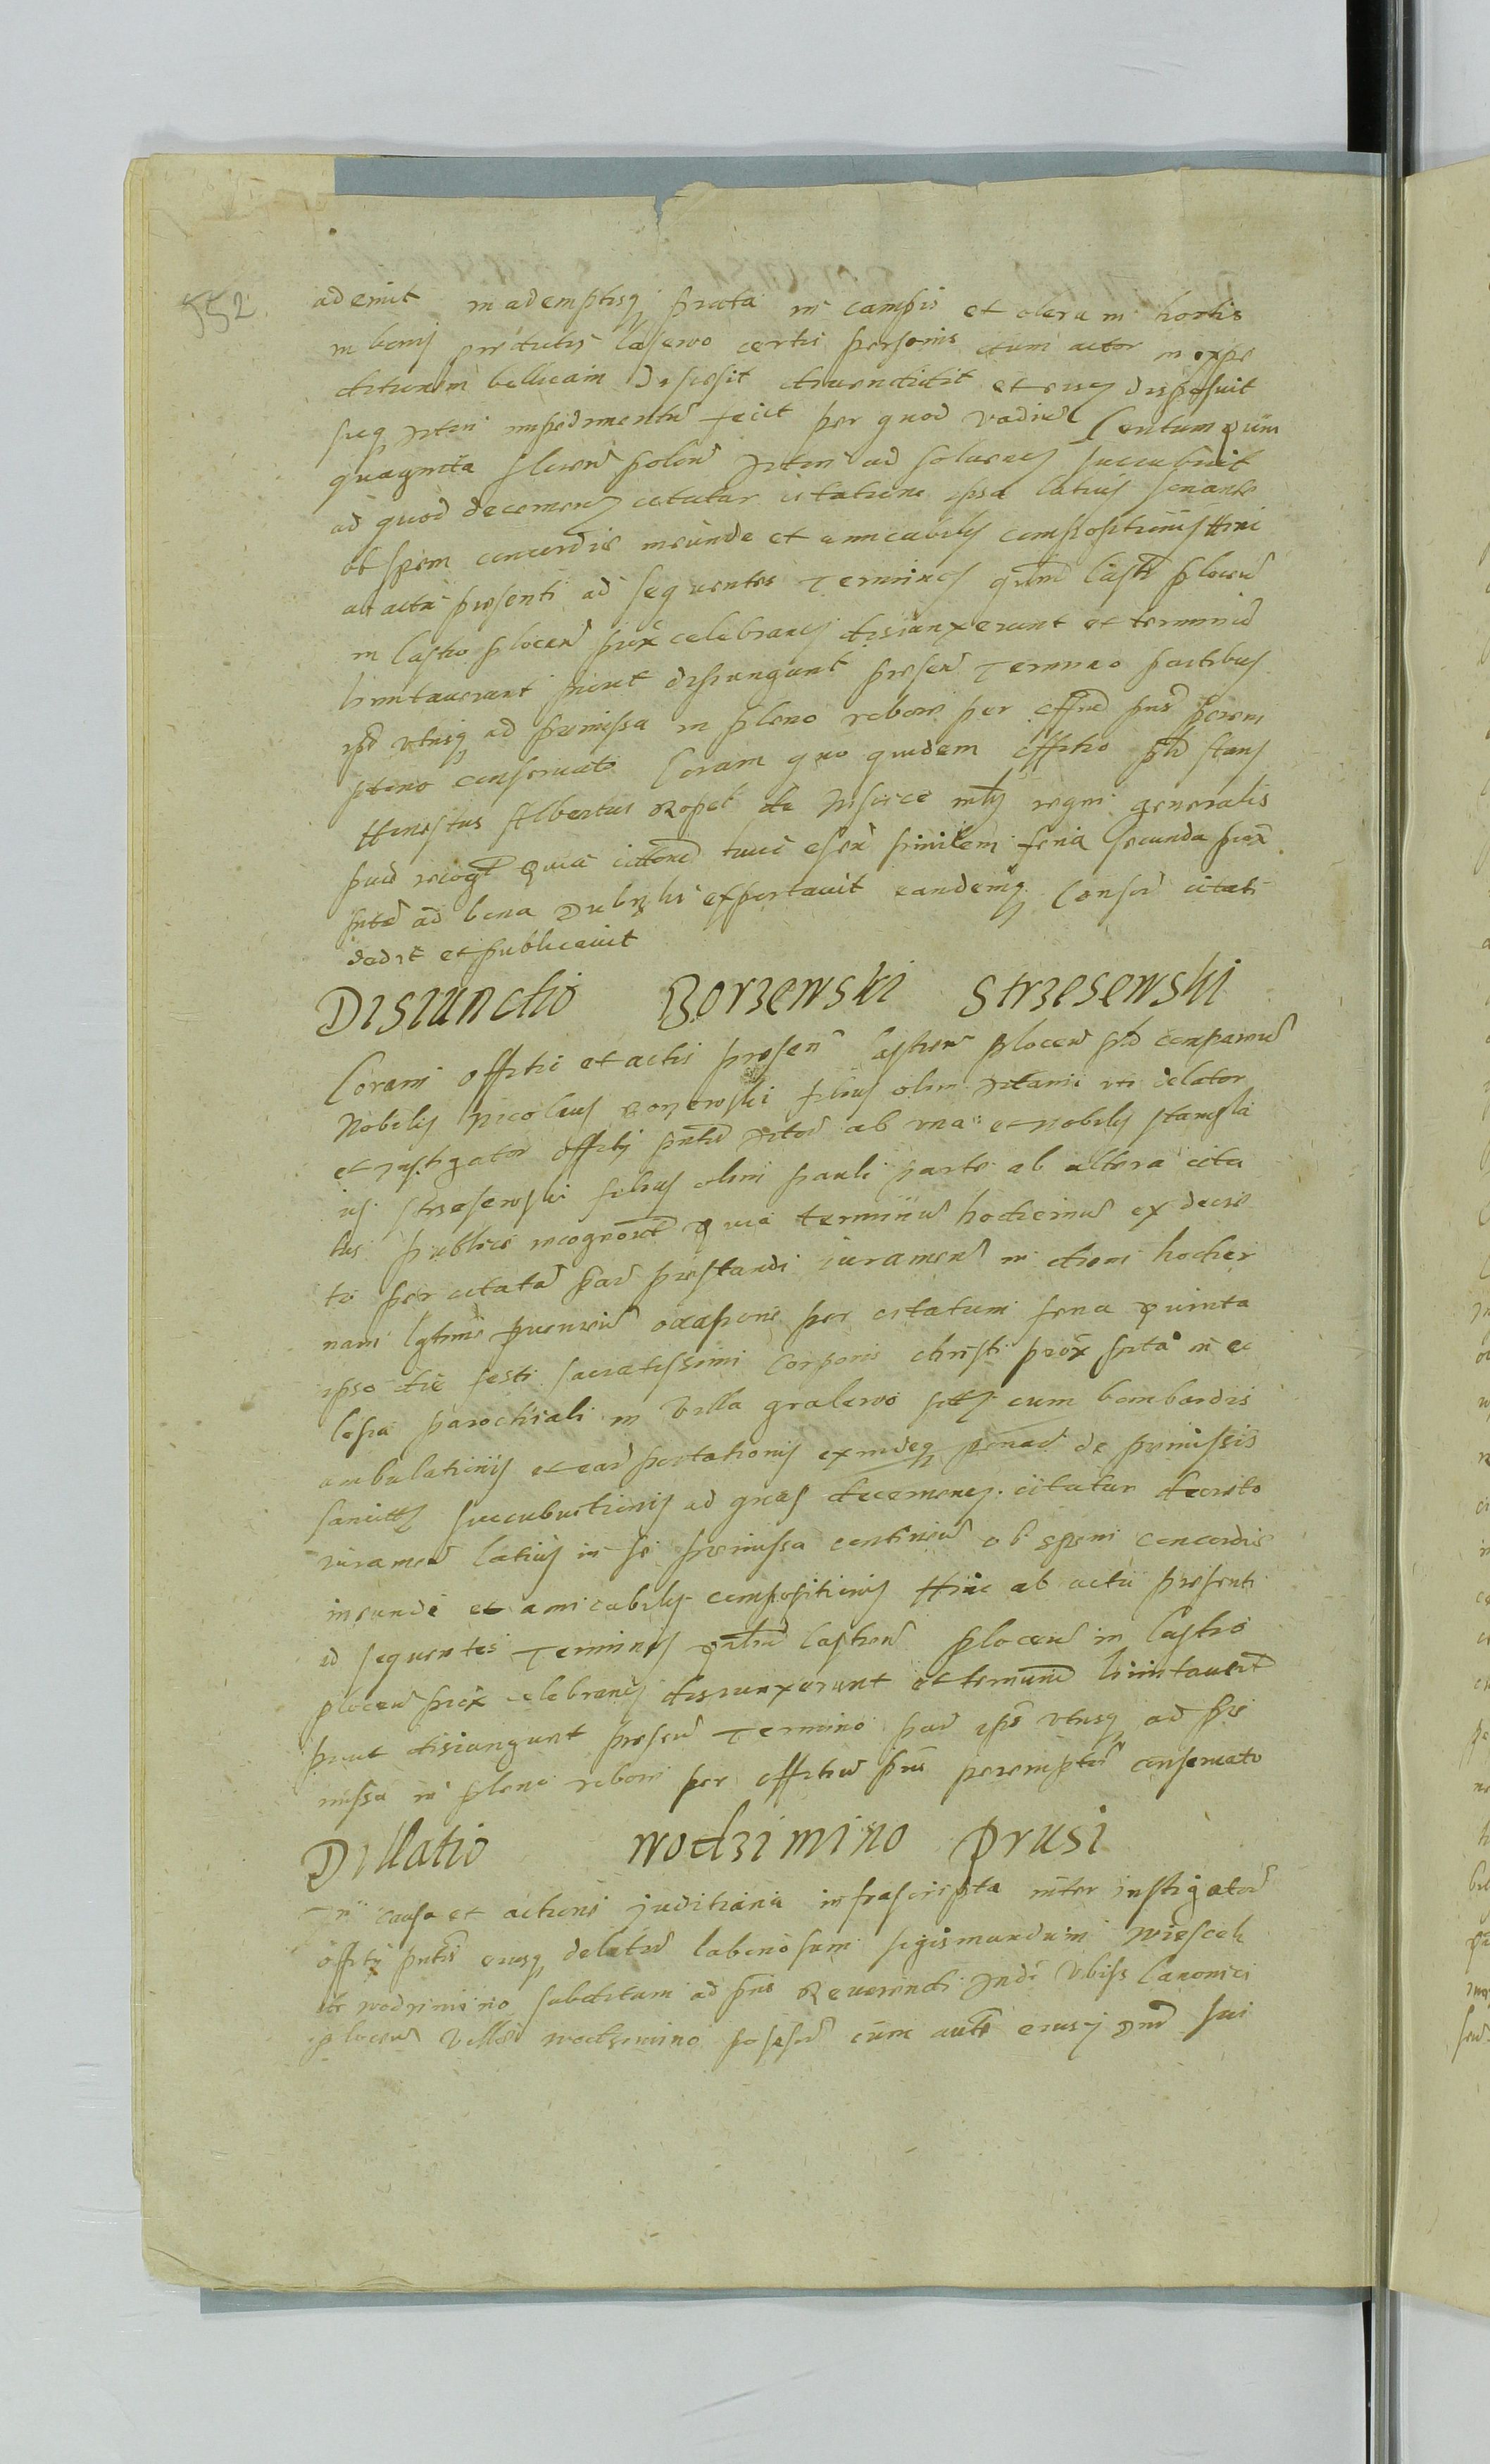 552.
ademit in ademptisq prata in campis et olera in hortis
in bonis predictis Lasewo certis personis dum actor in expe
ditionem bellicam discesit divendidit et eisq disposuit
sieq Actori impedimentu fecit per quod vadiu Centum quin
quaginta floren polon Actori ad solvens succubuit
ad quod decernens citatur citatione ipsa latius sonante
ob spem concordie ineunde et amicabilis compositionis Hinc
ab actu presenti ad sequentes Terminos qrim Castr plocen
in Castro plocen prox celebrans disiunxerunt et terminu
limitaverunt prout disiungunt presen Termino partibus
ipsi utrisq ad premissa in pleno robore per offm pns perem
ptorio conservato Coram quo quidem offitio psl stans
Honestus Albertus Ropel de mlis regni generalis
pub recogt Quia cittone huic esen similem feria secunda prox
prta ad bona Dubyki exportavit eandemq Consor citati
dedit et publicavit
Disiunctio Borzewski Strzesewski
Coram offitio et actis presen Castren plocen psl comparen
Nobilis Nicolaus Borzewski filius olim Adami uti delator
et Instigator offitij pntis Actor ab una et Nobilis Stanisla
us Strzesewski filius olim Pauli parte ab altera cita
tus publice recognort Quia terminu hodiernu ex decre
to per citatu par prestandi iuramen in diem hodier
nam lgtime provenien occasione per citatum feria Quinta
ipso die festi sacratissimi Corporis christi prox prta in ec
lesia parochiali in villa gralewo cum bombardis
ambulationis et ear portationis exindeq penar de premissis
succubuitionis ad quas decernens citatur decreto
iuramen latius in se premissa continen ob spem concordie
ineunde et amicabilis compositionis Hinc ab actu presenti
ad sequentes Terminos Castren plocen in Castro
plocen prox celebrans disiunxerunt et terminu limitaverut
prout disiungunt presen Termino par ipis utrisq ad pre
missa in pleno robore per offitiu pns peremptor conservato
Dillatio Wodzimino Prusi
In causa et actione Juditiaria infrascripta inter instigator
offitij pntis eiusq delator laboriosum Sigismundum
de Wodzimino subditum ad pns Reverendi Canonici
plocen ville Wodzimino posesor cum autte eiusq dni sui